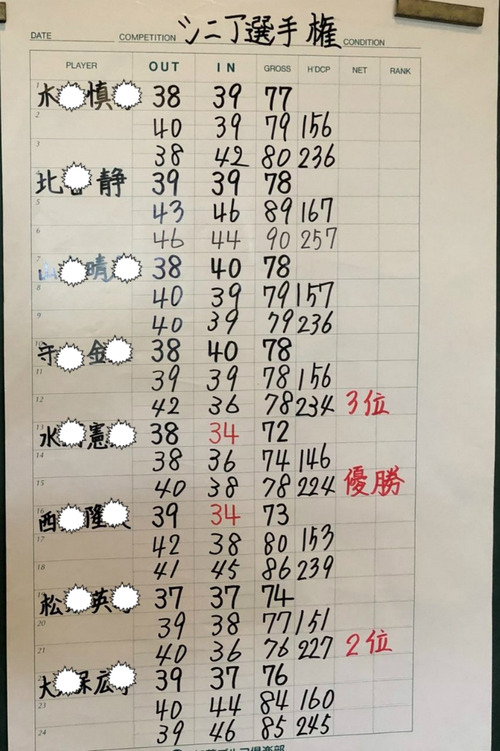 シニア選手権
DATE COMPETITION CONDITION
PLAYER OUT IN GROSS H'DCP NET RANK
1 水 慎 38 39 77
2 40 39 79 156
3 38 42 80 236
4 北 静 39 39 78
5 43 46 89 167
6 46 44 90 257
7 晴 38 40 78
8 40 39 79 157
9 40 39 79 236
10 守 金 38 40 78
11 39 39 78 156
12 42 36 78 234 3位
13 水 憲 38 34 72
14 38 36 74 146
15 40 38 78 224 優勝
16 西 隆 39 34 73
17 42 38 80 153
18 41 45 86 239
19 松 英 37 37 74
20 39 38 77 151
21 40 36 76 227 2位
22 大 保広 39 37 76
23 40 44 84 160
24 39 46 85 245
ゴルフ倶楽部